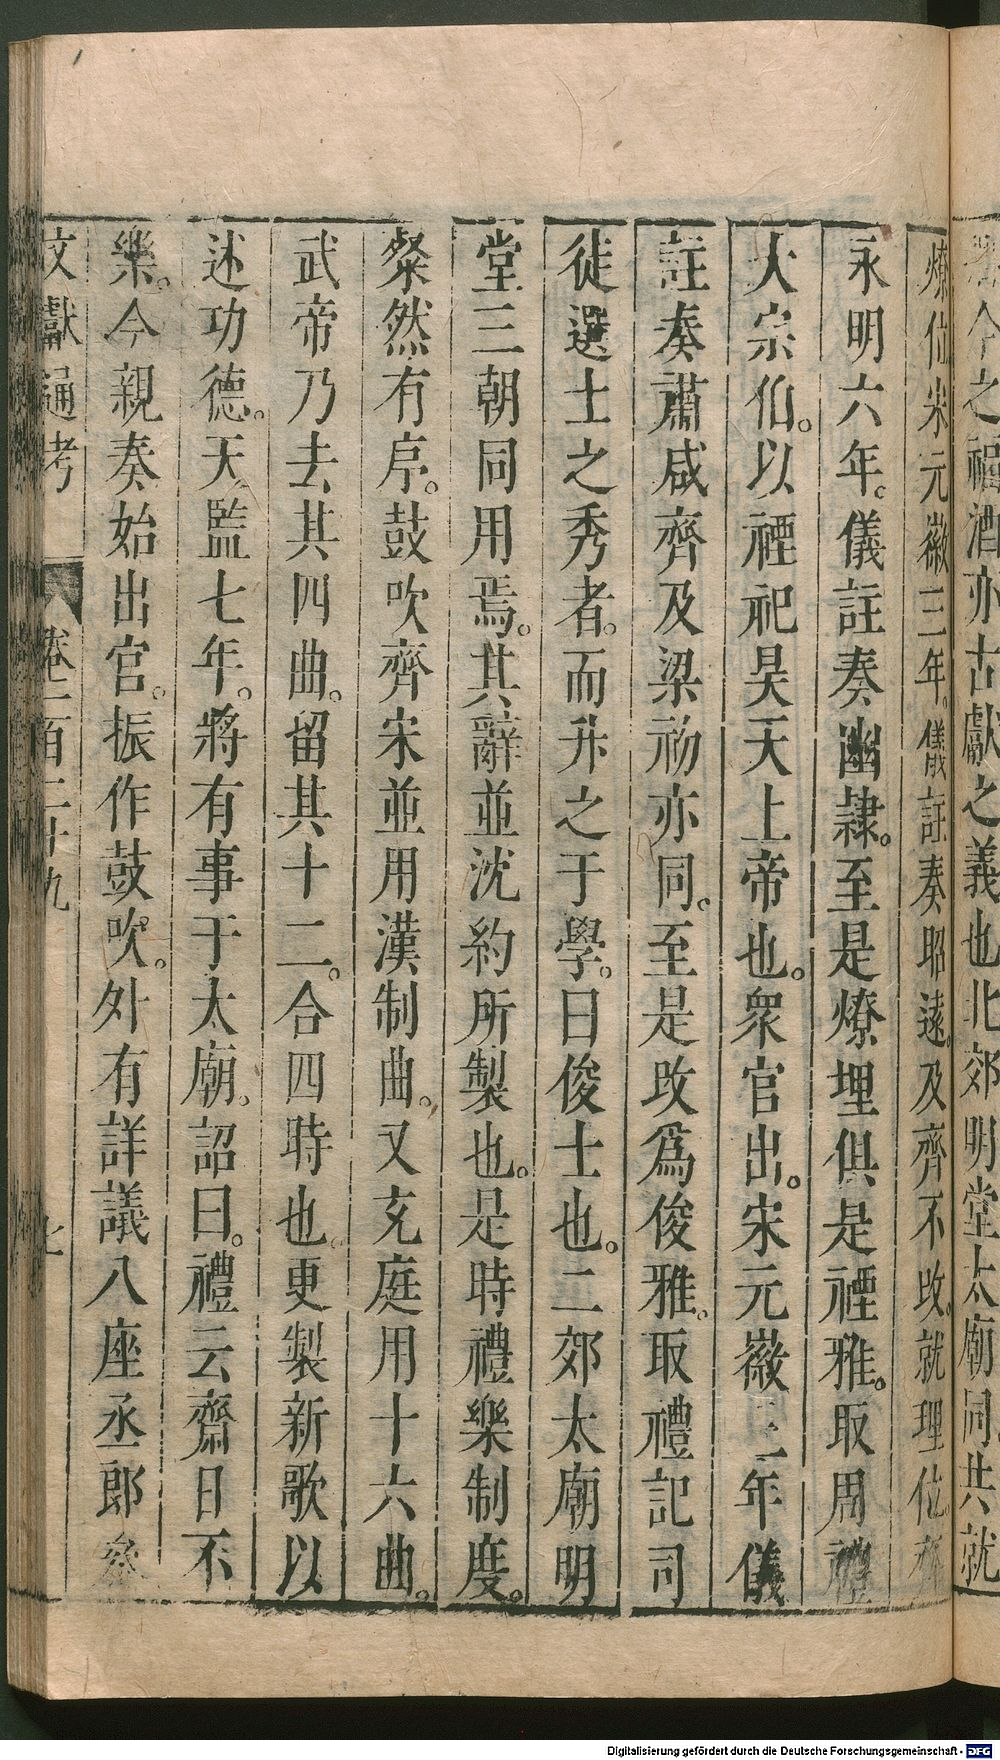 今之福酒亦古獻之義也北郊明堂太廟同共就
燎位宋元徽三年儀註奏昭遠及齊不改就理位齊
永明六年。儀註奏幽隷。至是燎埋俱是禋雅。取周禮
大宗伯。以禋祀昊天上帝也。衆官出。宋元徽三年儀
註奏肅咸齊及梁初亦同。至是改爲俊雅。取禮記司
徒選士之秀者。而升之于學。曰俊士也。二郊太廟明
堂三朝同用焉。其辭並沈約所製也。是時禮樂制度。
粲然有序。鼓吹齊宋並用漢制曲。又充庭用十六曲。
武帝乃去其四曲。留其十二。合四時也。更製新歌以
述功德。天監七年。將有事于太廟。詔曰。禮云齋日不
樂。今親奏始出宮。振作鼓吹。外有詳議八座丞郎參
文獻通考 卷一百二十九
Digitalisierung gefördert durch die Deutsche Forschungsgemeinschaft - DFG